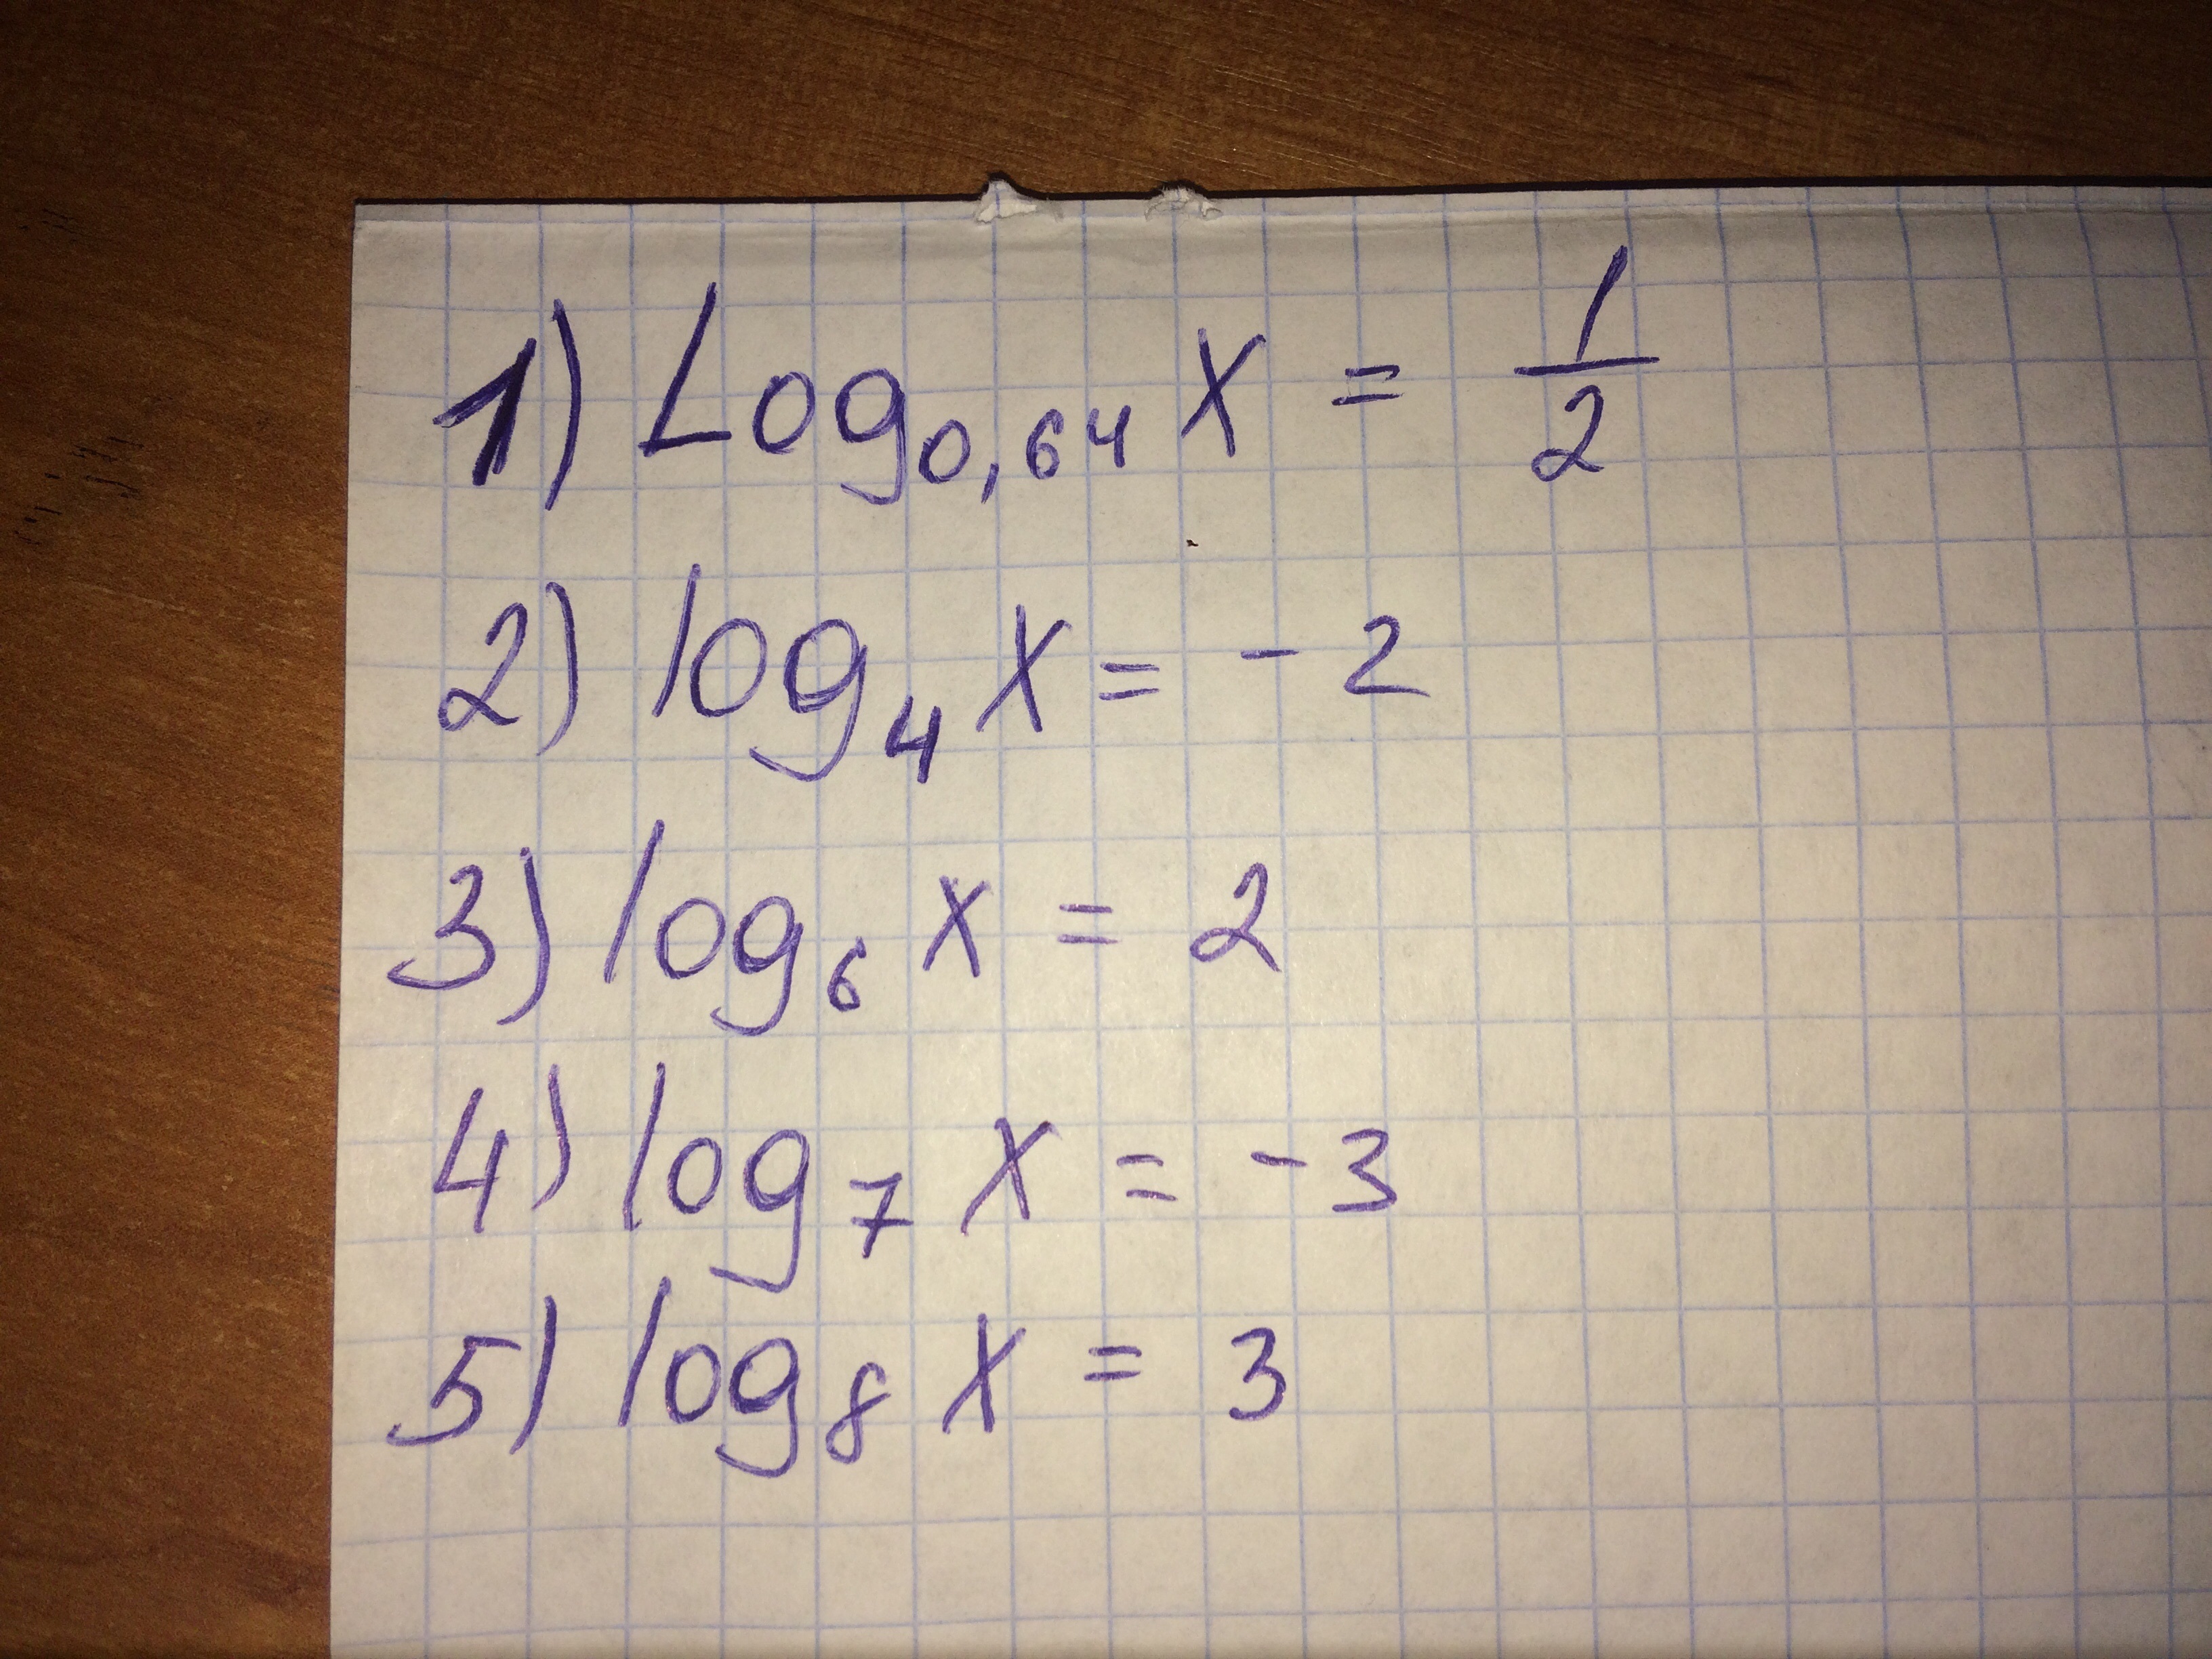 1) Log₀,₆₄ x = 1/2
2) log₄ x = - 2
3) log₆ x = 2
4) log₇ x = - 3
5) log₈ x = 3